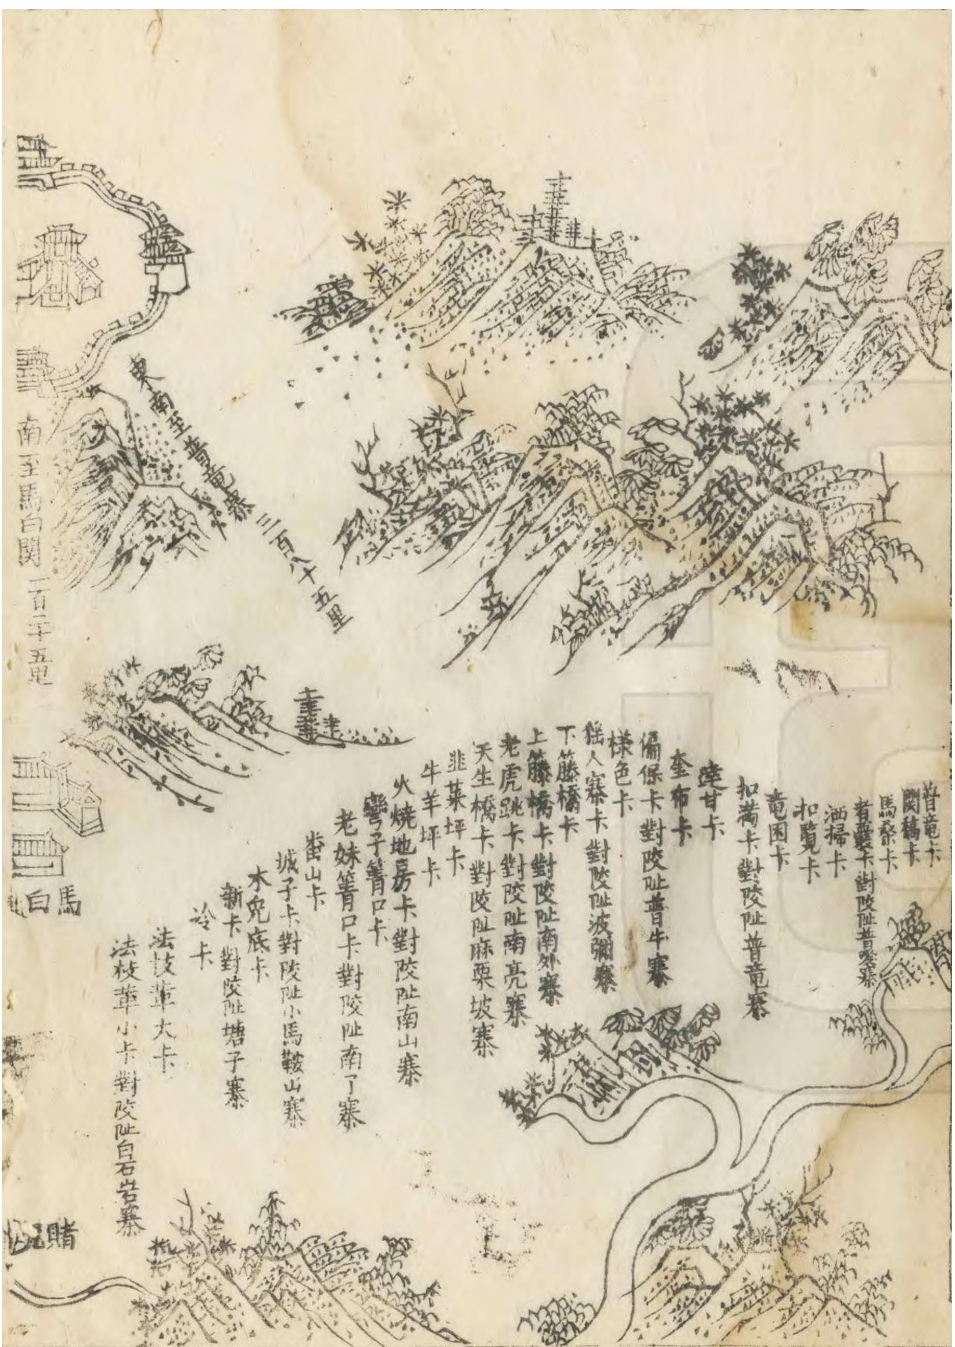 普竜卡
閗稿卡
馬桑卡
者囊卡對陡阯普嗟寨
洒掃卡
扣覽卡
竜围卡
扣萬卡對陡阯普竜寨
達甘卡
奎布卡
偏保卡對陡阯普牛寨
樣色卡
徭人寨卡對陡阯波彌寨
下籐橋卡
上籐橋卡對陡阯南外寨
老虎跳卡對陡阯南亮寨
天生橋卡對陡阯麻栗坡寨
韮菜坪卡
牛羊坪卡
火燒地房卡對陡阯南山寨
彎子箐口卡
老妹箐口卡對陡阯南丁寨
凿山卡
城子卡對陡阯小馬鞍山寨
木兒底卡
新卡對陡阯塘子寨
冷卡
法枝革大卡
法枝革小卡對陡阯白石岩寨
東南至普竜寨三百八十五里
南至馬白関一百二十五里
馬白
賭